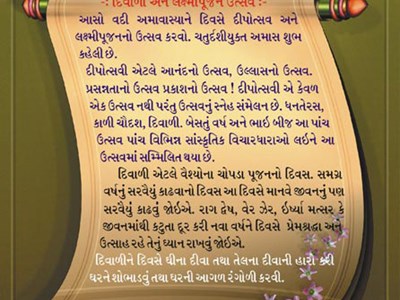 -: દિવાળી અને લક્ષ્મીપૂજન ઉત્સવ :-
આસો વદી અમાવાસ્યાને દિવસે દીપોત્સવ અને
લક્ષ્મીપૂજનનો ઉત્સવ કરવો. ચતુર્દશીયુક્ત અમાસ શુભ
કહેલી છે.
દીપોત્સવી એટલે આનંદનો ઉત્સવ, ઉલ્લાસનો ઉત્સવ.
પ્રસન્નતાનો ઉત્સવ પ્રકાશનો ઉત્સવ ! દીપોત્સવી એ કેવળ
એક ઉત્સવ નથી પરંતુ ઉત્સવનું સ્નેહ સંમેલન છે. ધનતેરસ,
કાળી ચૌદશ, દિવાળી. બેસતું વર્ષ અને ભાઇ બીજ આ પાંચ
ઉત્સવ પાંચ વિભિન્ન સાંસ્કૃતિક વિચારધારાઓ લઇને આ
ઉત્સવમાં સમ્મિલિત થયા છે.
દિવાળી એટલે વૈશ્યોના ચોપડા પૂજનનો દિવસ. સમગ્ર
વર્ષનું સરવૈયું કાઢવાનો દિવસ આ દિવસે માનવે જીવનનું પણ
સરવૈયું કાઢવું જોઇએ. રાગ દ્વેષ, વેર ઝેર, ઇર્ષ્યા મત્સર કે
જીવનમાંથી કટુતા દૂર કરી નવા વર્ષને દિવસે પ્રેમશ્રદ્ધા અને
ઉત્સાહ રહે તેનું ધ્યાન રાખવું જોઇએ.
દિવાળીને દિવસે ઘીના દીવા તથા તેલના દીવાની હારો કરી
ઘરને શોભાડવું તથા ઘરની આગળ રંગોળી કરવી.